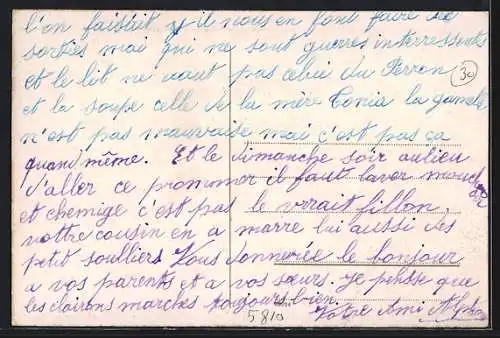 l'on faisait y il nous en font faire de
sorties mai qui ne sont guerres interressentes
et le lit ne vaut pas celui du Perron
30
et la soupe celle de la mère Tonia la gamelle
n'est pas mauvaise mai c'est pas ça
quand même. Et le dimanche soir aulieu
d'aller ce prommener il faut laver mouchoir
et chemige c'est pas le vrait fillon,
vottre cousin en a marre lui aussi des
petit soulliers Vous donnerée le bonjour
a vos parents et a vos sœurs. je pensse que
les clairons marches toujours bien.
Votre Ami
5810